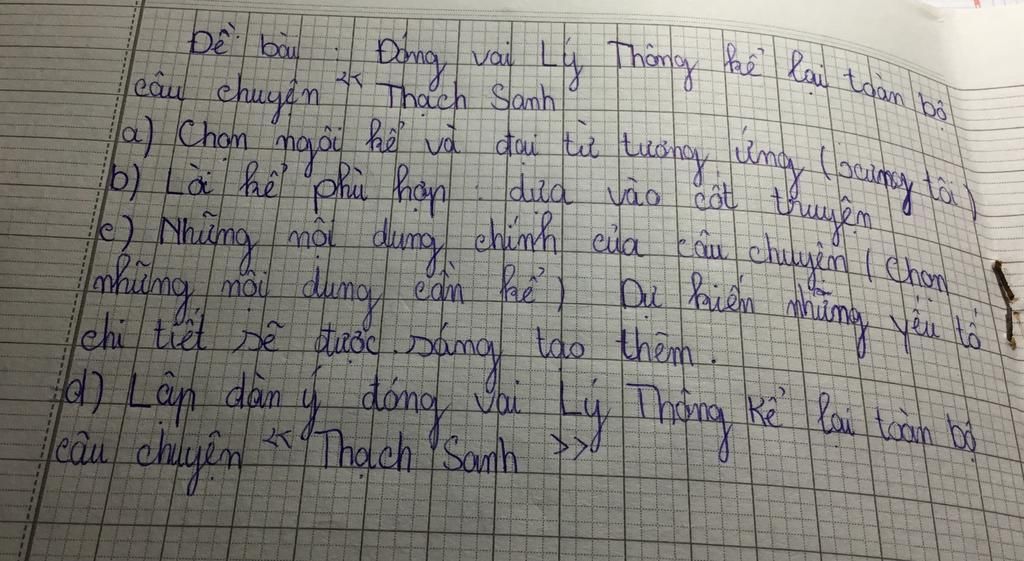 Đề bài : Đóng vai Lý Thông kể lại toàn bộ
câu chuyện << Thạch Sanh
a) Chọn ngôi kể và đại từ tương ứng (xưng tôi)
b) Lời kể phù hợp : dựa vào cốt truyện
c) Những nội dung chính của câu chuyện (Chọn
những nội dung cần kể) Dự kiến những yếu tố
chi tiết sẽ được sáng tạo thêm.
d) Lập dàn ý đóng vai Lý Thông kể lại toàn bộ
câu chuyện << Thạch Sanh >>